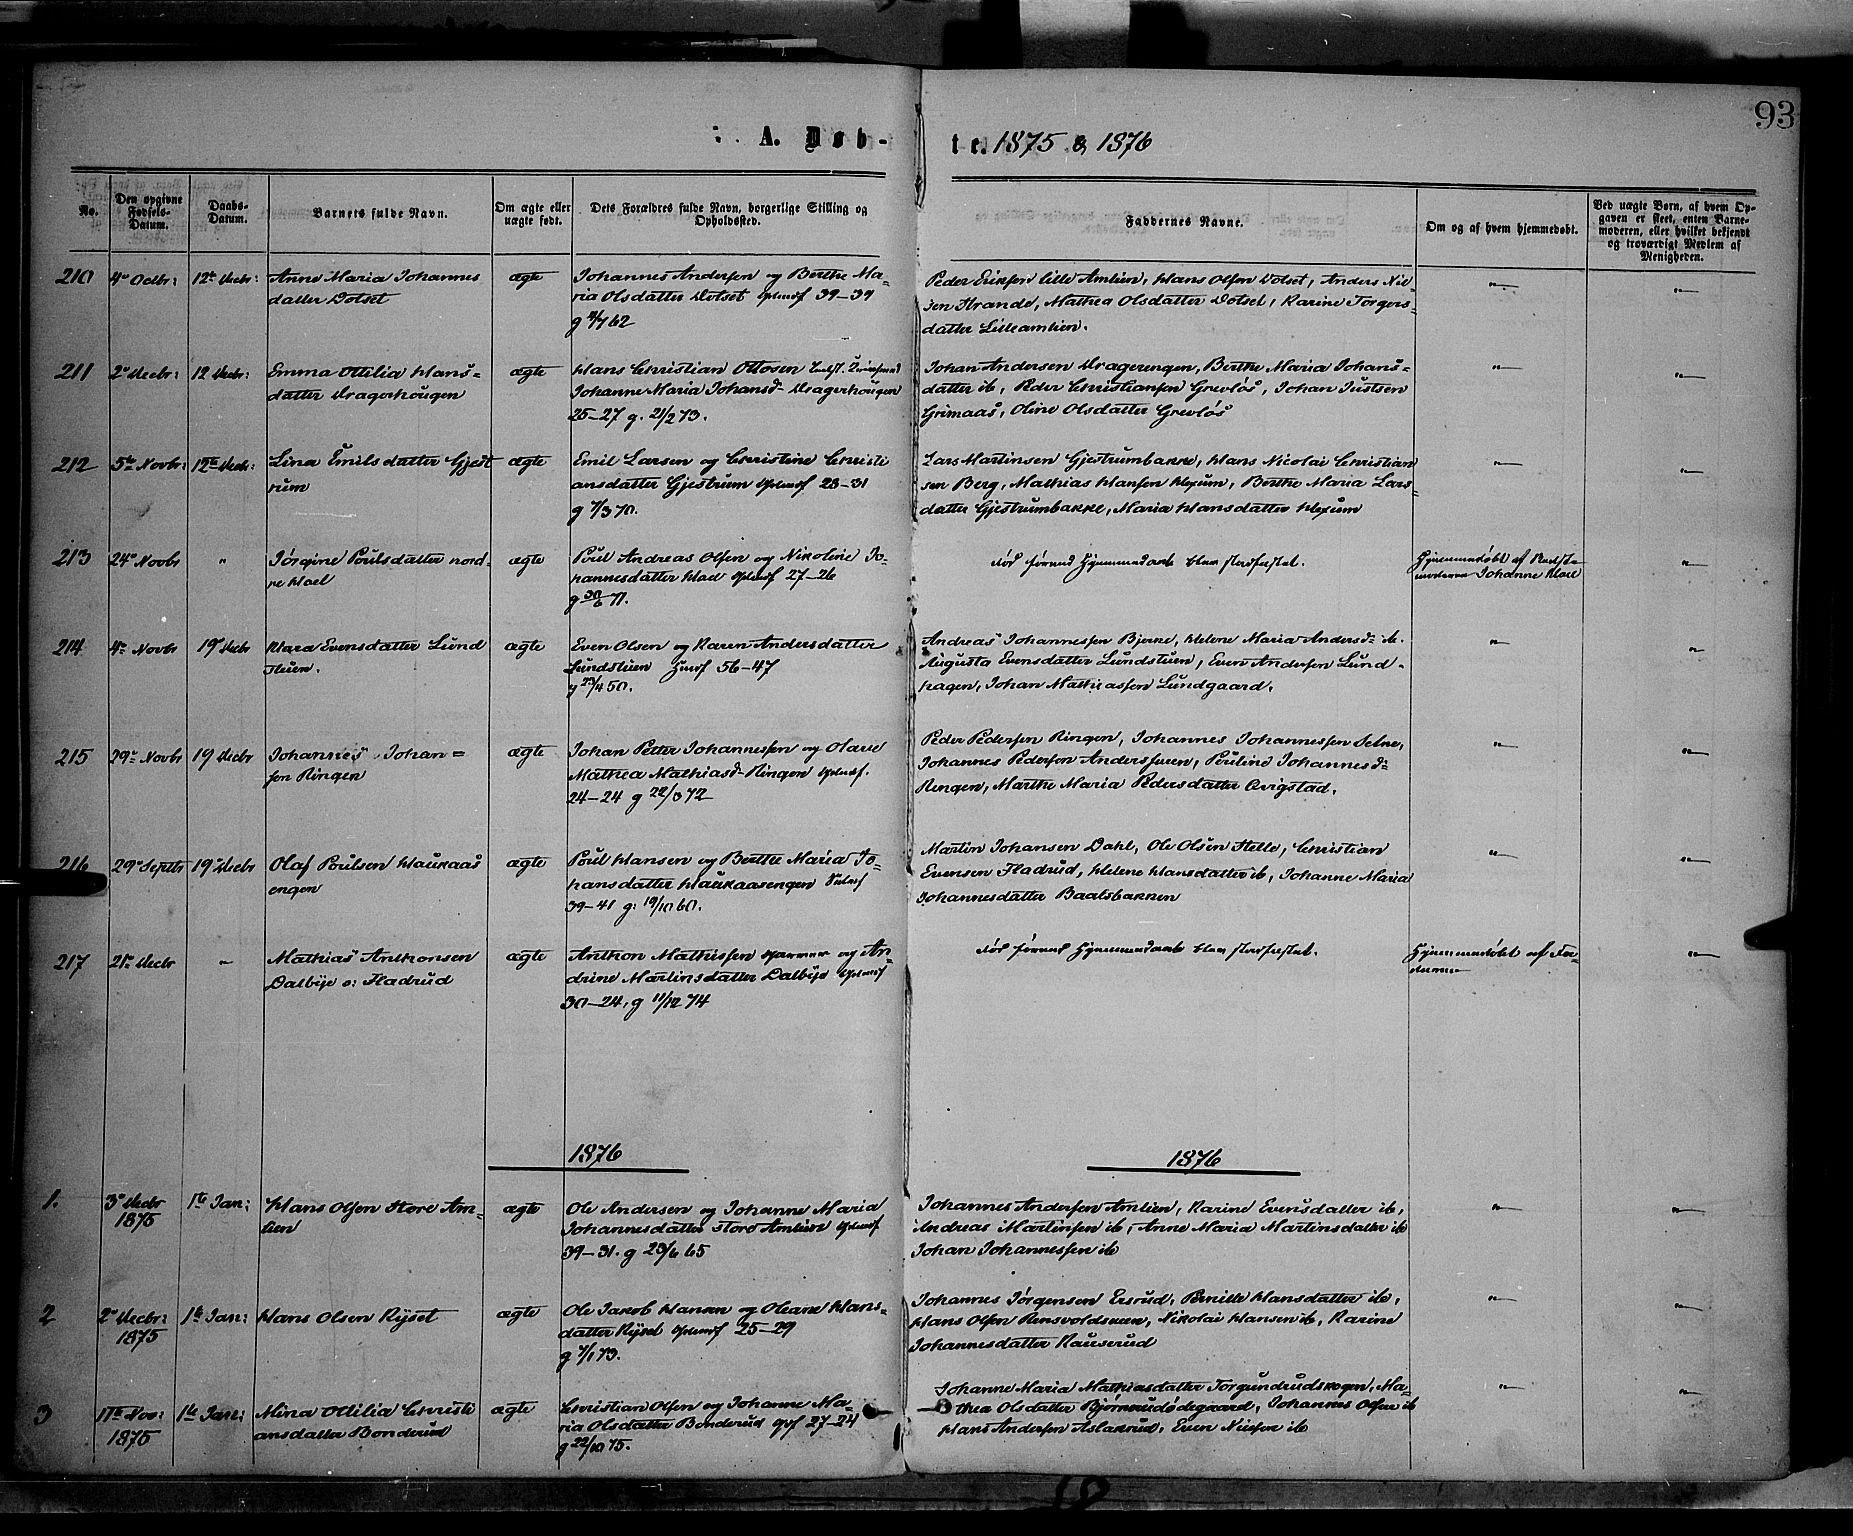 93
A. Døb-
te. 1875 & 1876
No.
Den opgivne Fødsels-Datum.
Daabs-Datum.
Barnets fulde Navn.
Om ægte eller uægte født.
Dets Forældres fulde Navn, borgerlige Stilling og Opholdssted.
Faddernes Navne.
Om og af hvem hjemmedøbt.
Ved uægte Børn, af hvem Op-
gaven er skeet, enten Barne-
moderen, eller hvilket bekjendt
og troværdigt Medlem af
Menigheden.
210 4de Octbr: 12te Decbr: Anne Maria Johannes
datter Dotset
ægte
Johannes Andersen og Berthe Ma-
ria Olsdatter Dotset 39-39
g 62
Peder Eriksen Lille Amlien, Hans Olsen Dotset, Anders Niel
sen Strande, Mathea Olsdatter Dotset, Karine Torgers-
datter Lilleamlien.
211 2den Decbr: 12 Decbr: Emma Ottilia Hans-
datter Dragerhougen
ægte
Hans Christian Ottosen
Johanne Maria Johansd- Dragerhougen
25-27 g. 21/2 73.
Johan Andersen Drageengen, Berthe Maria Johans-
datter ib, Peder Christiansen Grevløs, Johan Justsen
Grimaas, Oline Olsdatter Grevløs
212 5te Novbr: 12te Decbr: Lina Emilsdatter Gjest
rum
ægte
Emil Larsen og Christine Christi
ansdatter Gjestrum 23-31
g 7/3 70.
Lars Martinsen Gjestrumbakke, Hans Nicolai Christian
sen Berg, Mathias Hansen Hexum, Berthe Maria Lars-
datter Gjestrumbakke, Maria Hansdatter Hexum
213 24de Novbr " Jørgine Poulsdatter nord-
re Hoel
ægte
Poul Andreas Olsen og Nikoline Jo-
hannesdatter Hoel 27-26
g 30/6 71.
død førend Hjemmedaab blev stadfæstet.
Hjemmedøbt af
moderen Johanne Hoel
214 4de Novbr 19de Decbr Klara Evensdatter Lund
stuen.
ægte
Even Olsen og Karen Andersdatter
Lundstuen 56-47
g 23/4 50.
Andreas Johannessen Bjerke, Helene Maria Andersd- ib.
Augusta Evensdatter Lundstuen, Even Andersen Lund-
hagen, Johan Mathiassen Lundgaard.
215 29de Novbr 19 Decbr Johannes Johan=
sen Ringen
ægte
Johan Petter Johannessen og Olave
Mathea Mathiasd- Ringen
24-24 g 22/3 72
Peder Pedersen Ringen, Johannes Johannessen
Johannes Pedersen Anderssveen, Pouline Johannesd-
Ringen, Marthe Maria Pedersdatter Qvigstad.
216 29de Septbr 19de Decbr Olaf Poulsen Haukaas
engen
ægte
Poul Hansen og Berthe Maria Jo-
hansdatter Haukaasengen
39-41 g: 19/10 60.
Martin Johansen Dahl, Ole Olsen Stelle, Christian
Evensen Fladrud, Helene Hansdatter ib, Johanne Maria
Johannesdatter Baalsbakken
217 21de Decbr " Mathias Anthonsen
Dalbye o: Fladrud
ægte
Anthon Mathissen og An-
drine Martinsdatter Dalbye
30-24, g 11/12 74
død førend Hjemmedaab blev stadfæstet.
Hjemmedøbt af Fa-
deren
1876
1876
1. 3de Decbr 1875 1ste Jan: Hans Olsen Store Am-
lien
ægte
Ole Andersen og Johanne Maria
Johannesdatter store Amlien
39-31. g 23/6 65
Johannes Andersen Amlien, Karine Evensdatter ib,
Andreas Martinsen ib, Anne Maria Martinsdatter ib
Johan Johannessen ib
2 2den Decbr: 1875 1ste Jan: Hans Olsen Ryset
ægte
Ole Jakob Hansen og Oleane Hans-
datter Ryset 25-29
g 7/1 73.
Johannes Jørgensen Ersrud, Pernille Hansdatter ib,
Hans Olsen Rensvoldsveen, Nikolai Hansen ib, Karine
Johannesdatter Rauserud
3 17de Nov: 1875 1ste Jan: Mina Ottilia Christi
ansdatter Bonderud
ægte
Christian Olsen og Johanne Ma-
ria Olsdatter Bonderud 27-24
g 22/10 75.
Johanne Maria Mathiasdatter Torgundrudskogen, Ma-
thea Olsdatter Bjørnerudødegaard, Johannes Olsen ib
Hans Andersen Aslakrud, Even Nielsen ib